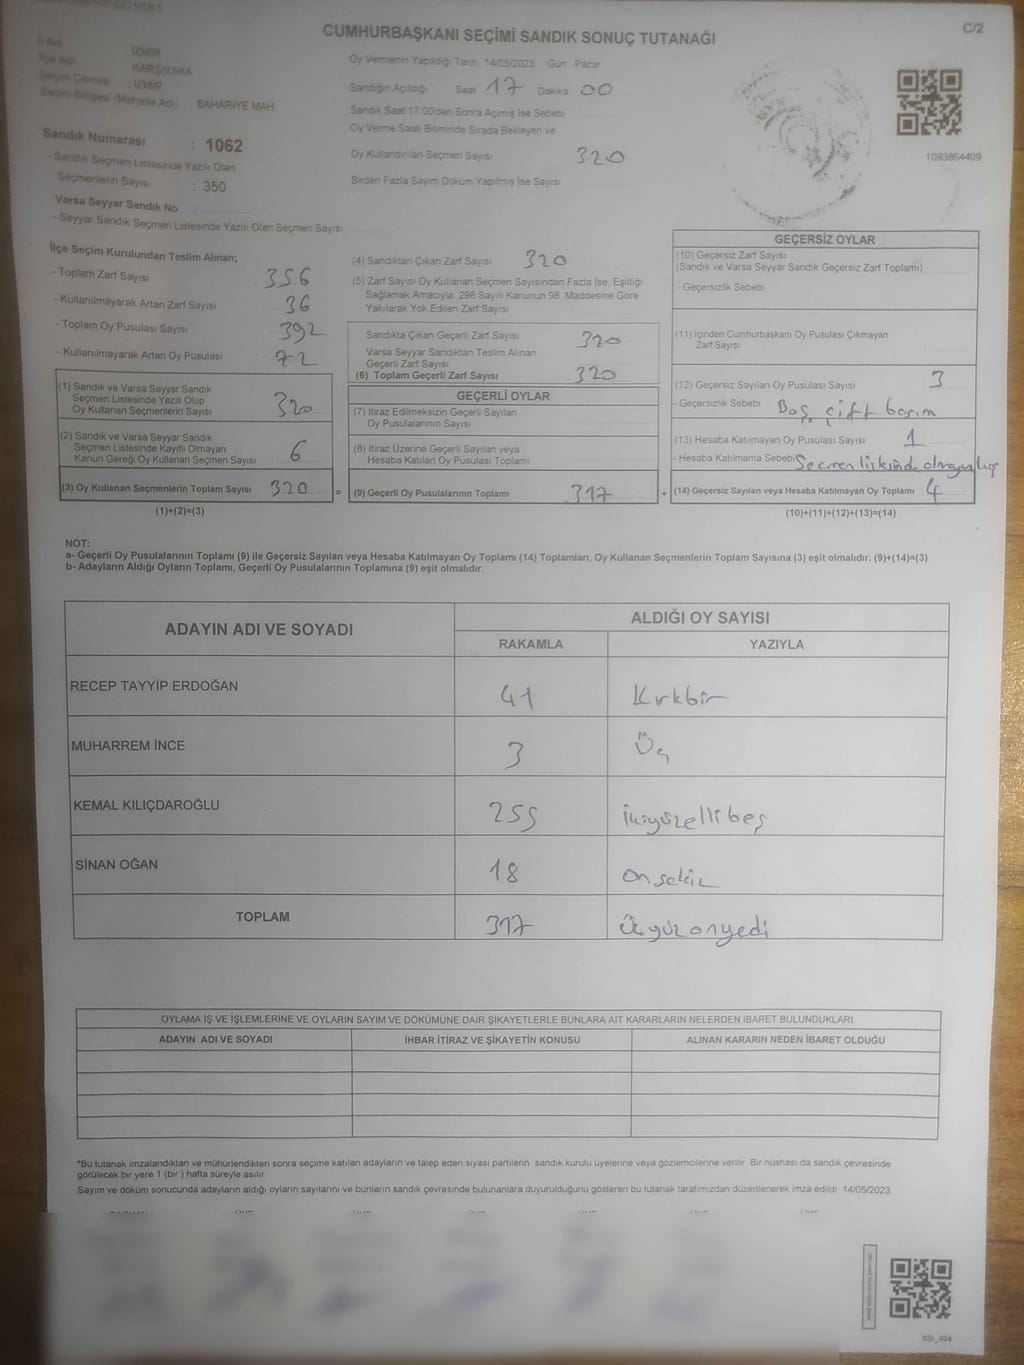 CUMHURBAŞKANI SEÇİMİ SANDIK SONUÇ TUTANAĞI
C/2
İlçe Adı
Seçim Çevresi
Seçim Bölgesi (Mahalle Adı)
İZMİR
KARŞIYAKA
: İZMİR
BAHARİYE MAH
Sandık Numarası : 1062
- Sandık Seçmen Listesinde Yazılı Olan
Seçmenlerin Sayısı : 350
Varsa Seyyar Sandık No :
- Seyyar Sandık Seçmen Listesinde Yazılı Olan Seçmen Sayısı:
Oy Vermenin Yapıldığı Tarih 14/05/2023 Gün Pazar
Sandığın Açıldığı Saat 17 Dakika 00
Sandık Saat 17.00'den Sonra Açılmış İse Sebebi
Oy Verme Saati Bitiminde Sırada Bekleyen ve
Oy Kullandırılan Seçmen Sayısı 320
Birden Fazla Sayım Döküm Yapılmış İse Sayısı
1093864409
İlçe Seçim Kurulundan Teslim Alınan;
- Toplam Zarf Sayısı 356
- Kullanılmayarak Artan Zarf Sayısı 36
- Toplam Oy Pusulası Sayısı 392
- Kullanılmayarak Artan Oy Pusulası 72
(1) Sandık ve Varsa Seyyar Sandık
Seçmen Listesinde Yazılı Olup
Oy Kullanan Seçmenlerin Sayısı 320
(2) Sandık ve Varsa Seyyar Sandık
Seçmen Listesinde Kayıtlı Olmayan
Kanun Gereği Oy Kullanan Seçmen Sayısı 6
(3) Oy Kullanan Seçmenlerin Toplam Sayısı 320
(1)+(2)=(3)
(4) Sandıktan Çıkan Zarf Sayısı 320
(5) Zarf Sayısı Oy Kullanan Seçmen Sayısından Fazla İse, Eşitliği
Sağlamak Amacıyla 298 Sayılı Kanunun 98. Maddesine Göre
Yakılarak Yok Edilen Zarf Sayısı
Sandıkta Çıkan Geçerli Zarf Sayısı 320
Varsa Seyyar Sandıktan Teslim Alınan
Geçerli Zarf Sayısı
(6) Toplam Geçerli Zarf Sayısı 320
GEÇERLİ OYLAR
(7) İtiraz Edilmeksizin Geçerli Sayılan
Oy Pusulalarının Sayısı
(8) İtiraz Üzerine Geçerli Sayılan veya
Hesaba Katılan Oy Pusulası Toplamı
= (9) Geçerli Oy Pusulalarının Toplamı 317 +
GEÇERSİZ OYLAR
(10) Geçersiz Zarf Sayısı
(Sandık ve Varsa Seyyar Sandık Geçersiz Zarf Toplamı)
- Geçersizlik Sebebi
(11) İçinden Cumhurbaşkanı Oy Pusulası Çıkmayan
Zarf Sayısı
(12) Geçersiz Sayılan Oy Pusulası Sayısı 3
- Geçersizlik Sebebi Boş, çift basım
(13) Hesaba Katılmayan Oy Pusulası Sayısı 1
- Hesaba Katılmama Sebebi Seçmen listesinde olmayan
(14) Geçersiz Sayılan veya Hesaba Katılmayan Oy Toplamı 4
(10)+(11)+(12)+(13)=(14)
NOT:
a- Geçerli Oy Pusulalarının Toplamı (9) ile Geçersiz Sayılan veya Hesaba Katılmayan Oy Toplamı (14) Toplamları, Oy Kullanan Seçmenlerin Toplam Sayısına (3) eşit olmalıdır. (9)+(14)=(3)
b- Adayların Aldığı Oyların Toplamı, Geçerli Oy Pusulalarının Toplamına (9) eşit olmalıdır.
ADAYIN ADI VE SOYADI
ALDIĞI OY SAYISI
RAKAMLA YAZIYLA
RECEP TAYYİP ERDOĞAN 41 Kırkbir
MUHARREM İNCE 3 Üç
KEMAL KILIÇDAROĞLU 255 İkiyüzellibeş
SİNAN OĞAN 18 onsekiz
TOPLAM 317 Üçyüz onyedi
OYLAMA İŞ VE İŞLEMLERİNE VE OYLARIN SAYIM VE DÖKÜMÜNE DAİR ŞİKAYETLERLE BUNLARA AİT KARARLARIN NELERDEN İBARET BULUNDUKLARI
ADAYIN ADI VE SOYADI İHBAR İTİRAZ VE ŞİKAYETİN KONUSU ALINAN KARARIN NEDEN İBARET OLDUĞU
*Bu tutanak imzalandıktan ve mühürlendikten sonra seçime katılan adayların ve talep eden siyasi partilerin sandık kurulu üyelerine veya gözlemcilerine verilir. Bir nüshası da sandık çevresinde
görülecek bir yere 1 (bir ) hafta süreyle asılır
Sayım ve döküm sonucunda adayların aldığı oyların sayılarını ve bunların sandık çevresinde bulunanlara duyurulduğunu gösteren bu tutanak tarafımızdan düzenlenerek imza edildi 14/05/2023